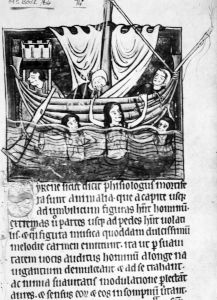 MS BODL 764
Syrene sicut dicit phisiologus mortife
ra sunt animalia que a capite usqʒ
ad umbilicum figuras hn̄t hominū
extremas ū partes usqʒ ad pedes hn̄t uolati
lis et qi figura musica quoddam dulcissimū
melodie carmen emittunt ita ut p suaui
tatem uocis auditus hominū a longe na
uigantium demulceant et ad se trahant
ac nimia suauitatis modulatione plectant
aures et sensus eoꝝ et eos in sompnū uertant